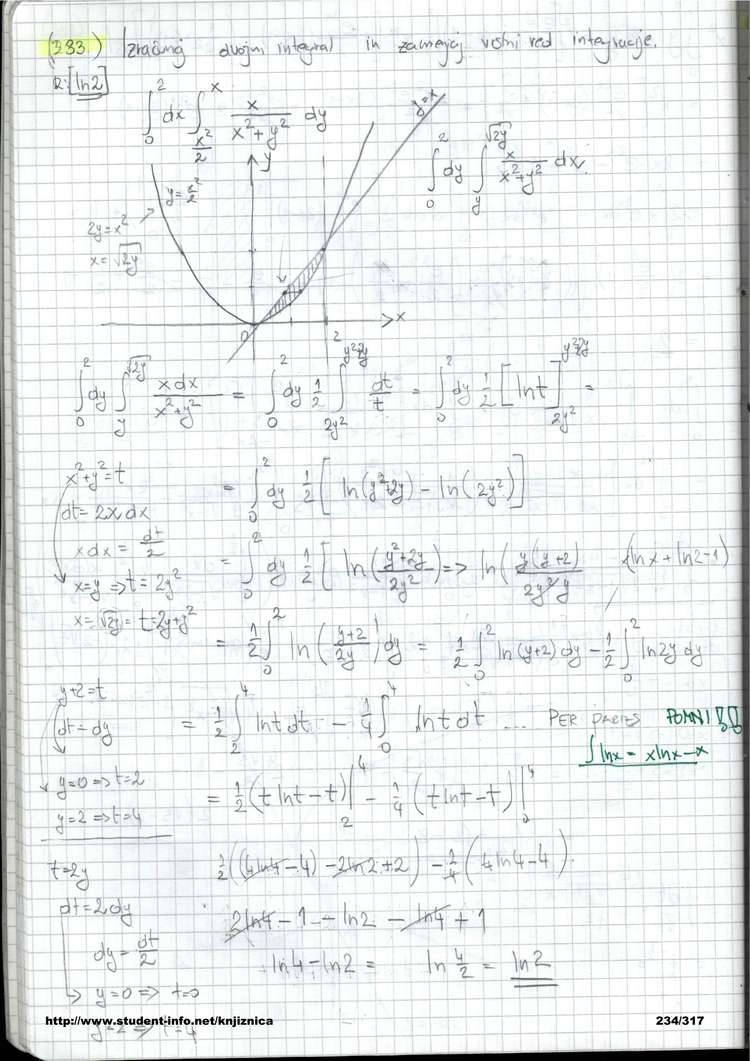 (383) Izračunaj dvojni integral in zamenjaj vrstni red integracije.
R: [ln2]
∫₀² dx ∫_{x²/2}^{x} x/(x²+y²) dy
y=x
y
y=x²/2
2y=x²
x=√2y
∫₀² dy ∫_y^{√2y} x/(x²+y²) dx.
x
0
2
∫₀² dy ∫_y^{√2y} xdx/(x²+y²) = ∫₀² dy 1/2 ∫_{2y²}^{y²+2y} dt/t = ∫₀² dy 1/2 [ln t]_{2y²}^{y²+2y} =
x²+y²=t
dt=2xdx
xdx = dt/2
x=y => t=2y²
x=√2y = t=2y+y²
= ∫₀² dy 1/2 [ln(y²+2y) - ln(2y²)]
= ∫₀² dy 1/2 [ln((y²+2y)/2y²) => ln(y(y+2)/2y²y (lnx+ln2-1)
= 1/2 ∫₀² ln((y+2)/2y) dy = 1/2 ∫₀² ln(y+2) dy - 1/2 ∫₀² ln2y dy
y+2=t
dt=dy
y=0 => t=2
y=2 => t=4
= 1/2 ∫₂⁴ lnt dt - 1/4 ∫₀⁴ lnt dt ... PER PARTES POMNI!!
∫lnx = xlnx-x
= 1/2 (t lnt-t)|₂⁴ - 1/4 (t lnt-t)|₀⁴
t=2y
dt=2dy
dy=dt/2
y=0 => t=0
y=2 => t=4
1/2((4ln4-4) -2ln2+2) - 1/4(4ln4-4)
2ln4-1-ln2-ln4+1
ln4-ln2 = ln 4/2 = ln2
http://www.student-info.net/knjiznica
234/317